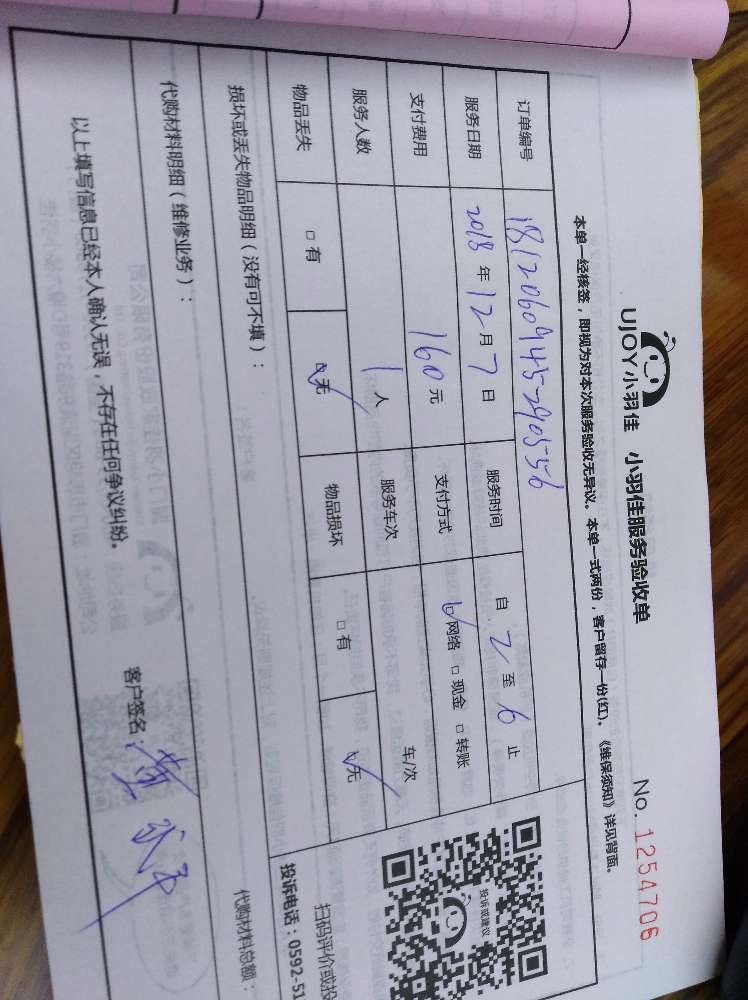 UJOY小羽佳 小羽佳服务验收单 No. 1254706
本单一经核签，即视为对本次服务验收无异议。本单一式两份，客户留存一份(红)。《维保须知》详见背面。
订单编号 181206094529055 6
服务日期 2018 年 12 月 7 日 服务时间 自 2 至 6 止
支付费用 160 元 支付方式 ☑网络 □现金 □转账
服务人数 1 人 服务车次 车/次
物品丢失 □有 ☑无 物品损坏 □有 ☑无
投诉或建议
扫码评价或投
投诉电话：0592-51
损坏或丢失物品明细（没有可不填）：
代购材料明细（维修业务）： 代购材料总额：
以上填写信息已经本人确认无误，不存在任何争议纠纷。 客户签名